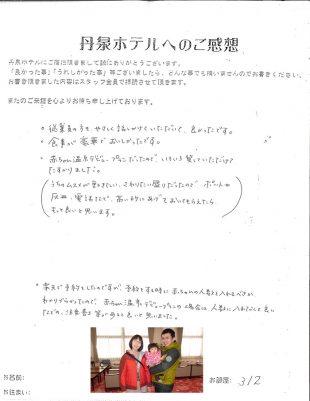 丹泉ホテルへのご感想
丹泉ホテルにご宿泊頂きまして誠にありがとうございます。
「良かった事」「うれしかった事」等ございましたら、どんな事でも構いませんのでお書きください。
お書き頂きました内容はスタッフ全員で拝読させて頂きます。
またのご来館を心よりお待ち申し上げております。
・従業員の方も、やさしく話しかけていただいて、良かったです。
・食事が豪華でおいしかったです。
・赤ちゃん温泉デビュープランだったので、いろいろ貸していただけて
たすかりました。
うちのムスメが動きたい、さわりたい盛りだったので、ポットや
灰皿、電話などが、高い所にあげておいてもらえたら
もっと良いと思います。
・楽天で予約をしたのですが、予約をする時に赤ちゃんの人数も入れるべきか
わかりづらかったので、赤ちゃん温泉デビュープランの場合は、人数に入れなくても良い
などの、注意書き等があると良いと思いました。
お名前:
お部屋: 312
お住まい: